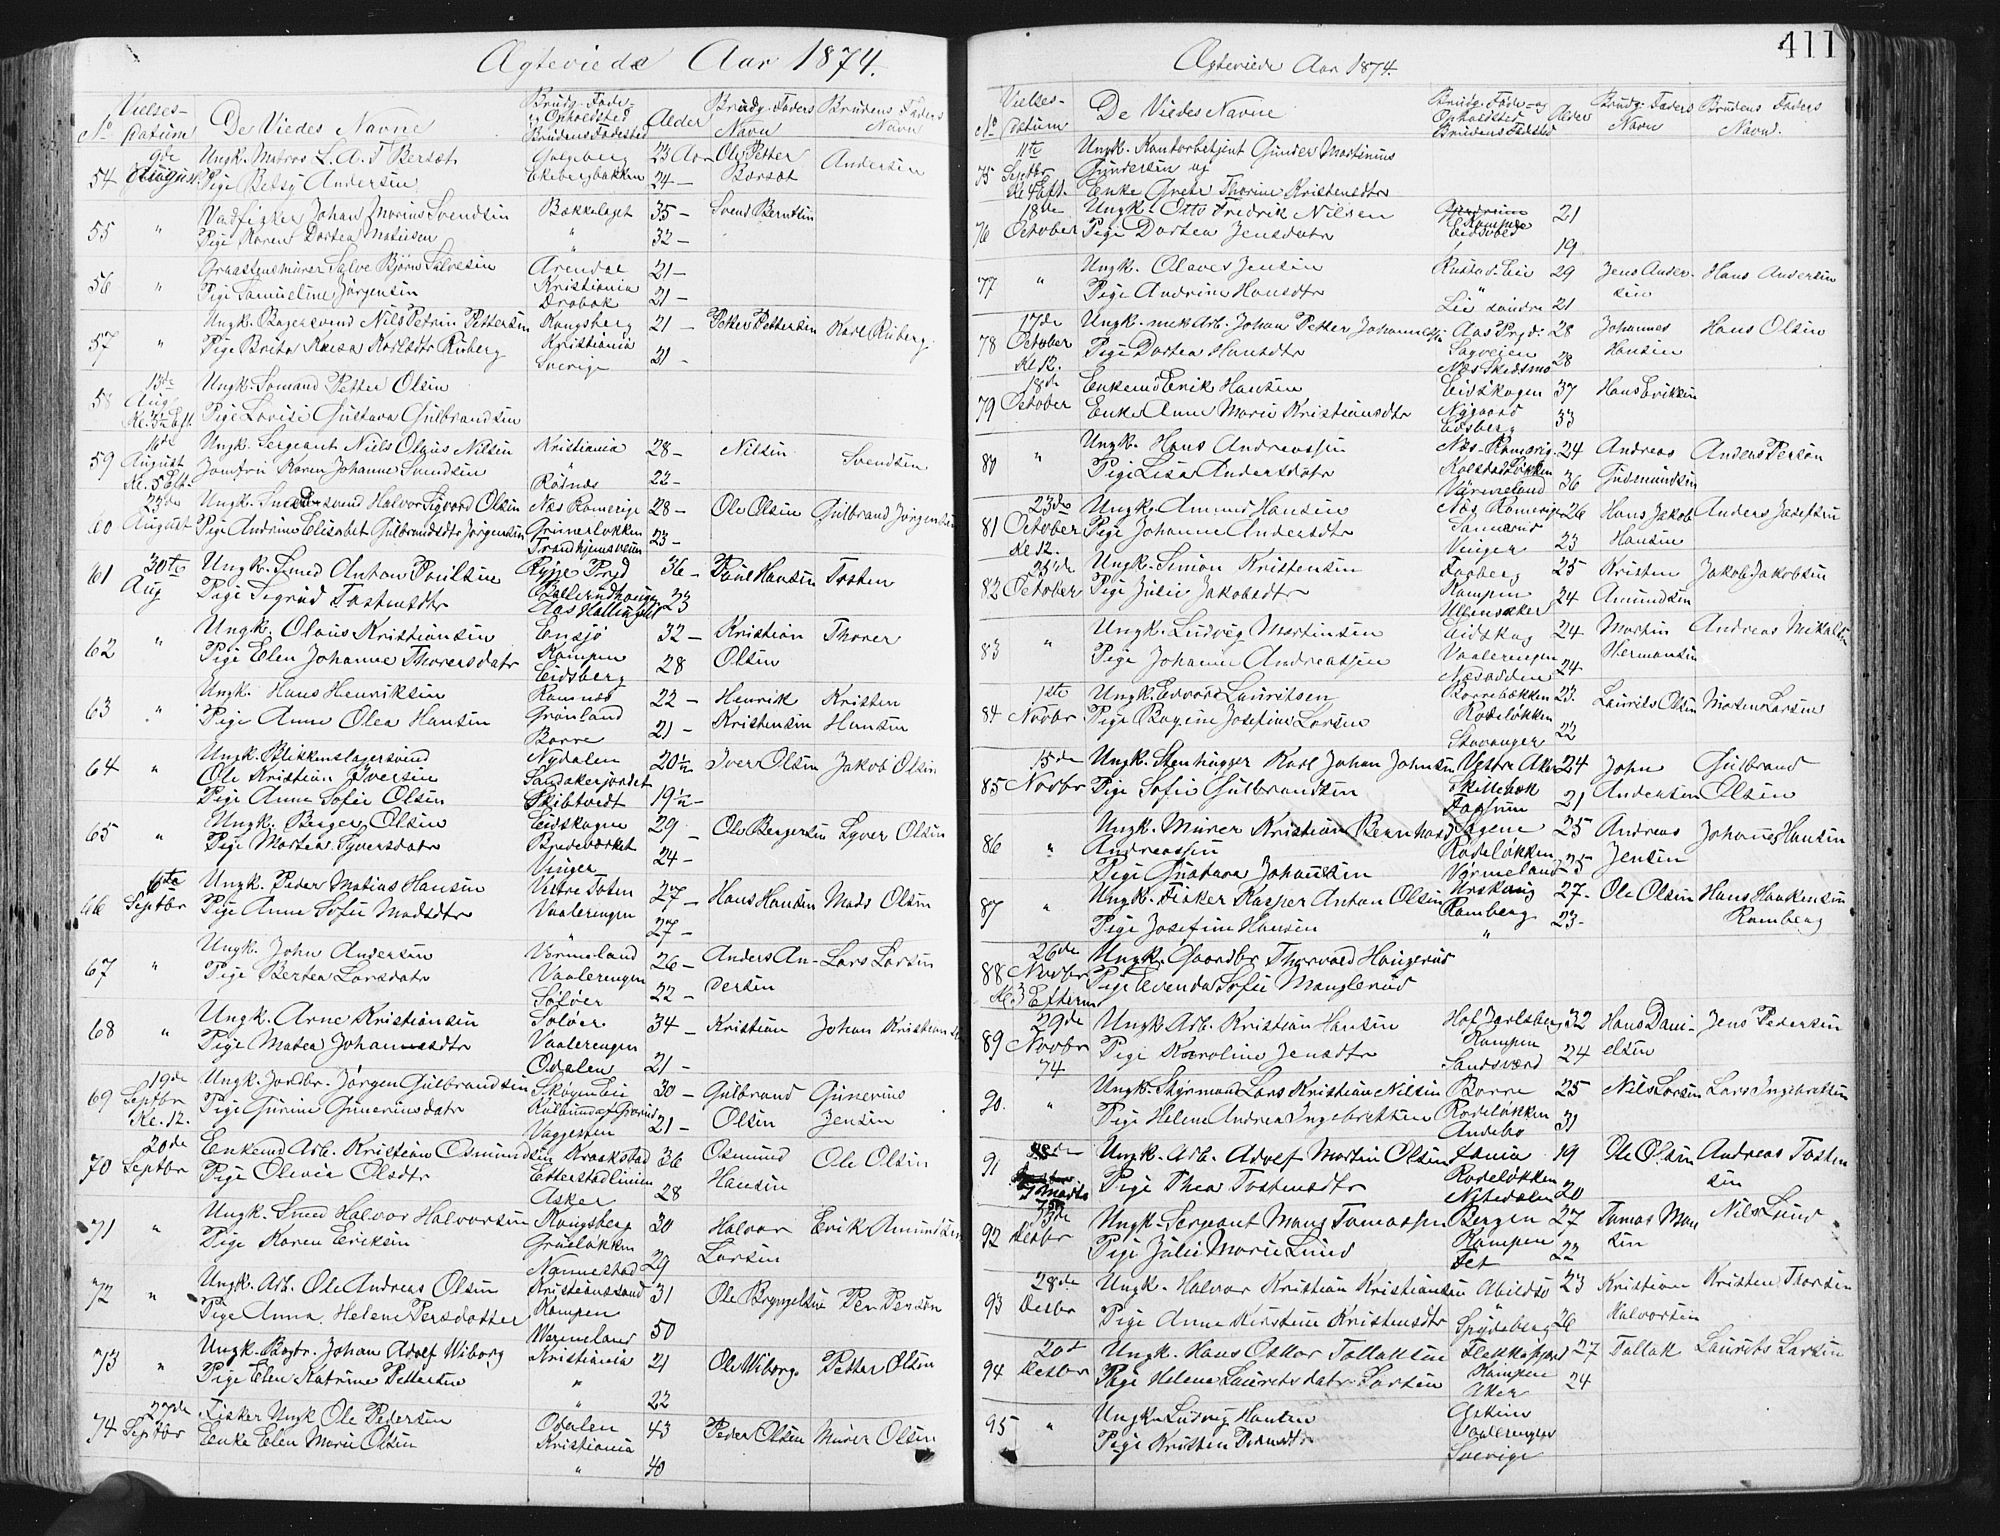 Ægteviede Aar 1874.
No Vielses-Datum De Viedes Navne Brudg. Føde- og Opholdsted Brudens Fødested Alder Brudg. Faders Navn Brudens Faders Navn
9de Ungk. Matros L. A. T Bersæt 23 Aar Ole Petter Andersen
54 August Pige Betsy Andersen Ekebergbakken 24 – Børsæt
Johan Marius Svendsen Bækkelaget 35 – Svend Berntsen
55 " Pige Karen Dortea " 32 –
Graastensmurer Salve Bjørn Salvesen Arendal 21 –
56 " Pige Samueline Jørgensen Kristiania 21 –
Drøbak
Ungk. Bagersvend Nils Petrin Pettersen Kongsberg 21 – Petter Pettersen Karl Ruberg
57 " Pige Brita Kaisa Karlsdtr Ruberg Kristiania 21 –
Sverige
13de Ungk. Sømand Petter Olsen
58 Aug Kl. 3½ Eft. Pige Lovise Gustava Gulbrandsen
16de Ungk. Sergeant Niels Olaus Nilsen Kristiania 28 – Nilsen Svendsen
59 August Kl. 5 Eft. Jomfru Karen Johanne Svendsen " 22 –
23de Ungk. Halvor Sigvard Olsen Næs Romerige 28 – Ole Olsen Gulbrand Jørgensen
60 August Pige Andrine Elisabet Gulbrandsdtr Jørgensen Grünerløkken 23 –
Trondhjemsveien
30te Ungk. Smed Anton Poulsen Rygge Prgd 36 – Poul Hansen Tosten
61 Aug Pige Sigrid Tostensdtr 23
Ungk. Olaus Kristiansen Ensjø 32 – Kristian Thorer
62 " Pige Elen Johanne Thorersdatr Kampen 28 Olsen
Eidsberg
Ungk. Hans Henriksen Ramnæs 22 – Henrik Kristen
63 " Pige Anne Olea Hansen Grønland 21 – Kristensen Hansen
Borre
Ungk. Blikkenslagersvend Nydalen 20½ Iver Olsen Jakob Olsen
64 " Ole Kristian Iversen Sandakerjordet
Pige Anne Sofie Olsen Skibtvedt 19½ –
Ungk. Berger Olsen Eidskogen 29 – Ole Bergersen Syver Olsen
65 " Pige Martea Syversdatr 24 –
Vinger
6te Ungk. Peder Matias Hansen Vestre Toten 27 – Hans Hansen Mads Olsen
66 Septbr Pige Anne Sofie Madsdtr Vaalerengen
" 27 –
Ungk. John Andersen Vermeland 26 – Anders An- Lars Larsen
67 " Pige Bertea Larsdatr Vaalerengen dersen
Soløer 22 –
Ungk. Arne Kristiansen Soløer 34 – Kristian Johan Kristiansen
68 " Pige Matea Johannesdtr Vaalerengen
Odalen 21 –
19de Ungk. Jordbr. Jørgen Gulbrandsen Skøyen Eie 30 – Gulbrand Gunerius
69 Septbr Kl. 12. Pige Gurine Guneriusdatr 21 – Olsen Jensen
20de Enkemd Arb. Kristian Osmundsen Kraakstad 36 Osmund Ole Olsen
70 Septbr Pige Olivia Olsdtr Etterstadlinien 28 Hansen
Asker
Ungk. Smed Halvor Halvorsen Kongsberg 30 Halvor Erik Amundsen
71 " Pige Karen Eriksen Grüneløkken Larsen
Nannestad 29
Ungk. Arb. Ole Andreas Olsen Kristianssand 31 Ole Bryngelsen Per Persen
72 " Pige Anna Helene Persdatter Kampen
Wermeland 50
Ungk. Bagbr. Johan Adolf Wiborg Kristiania 21 Ole Wiborg Petter Olsen
73 " Pige Elen Katrine Pettersen "
" 22
27de Fisker Ungk Ole Pedersen Odalen 43 Peder Olsen Murer Olsen
74 Septbr Enke Elen Marie Olsen Kristiania
" 40
411
Ægteviede Aar 1874.
No Vielses-Datum De Viedes Navne Brudg. Føde- og Opholdsted Brudens Fødested Alder Brudg. Faders Navn Brudens Faders Navn.
11te Ungk. Kontorbetjent Gunder Martinius
75 Septbr Kl 4 Eft. Gundersen og
Enke Grete Thorine Kristensdtr
18de Ungk. Otto Fredrik Nilsen 21
76 October Pige Dortea Jensdatr Kampen
Eidsvold 19.
Ungk. Olaves Jensen Rustad Eie 29 Jens Ander- Hans Andersen
77 " Pige Andrine Hansdtr " sen
Lie søndre 21
17de Ungk. mek Arb. Johan Petter Johannesen Aas Prgd: 28 Johannes Hans Olsen
78 October Kl 12. Pige Dortea Hansdtr Sagveien Hansen
Næs Skedsmo 28
18de Enkemd Erik Hansen Eidskogen 37 Hans Erikksen
79 October Enke Anne Marie Kristiansdtr Nygaard 33
Edsberg
Ungk. Hans Andreassen Næs Romerig. 24 Andreas Anders Persen
80 " Pige Lisa Andersdatr Gudmundsen
Värmeland 36
23de Ungk. Amund Hansen Næs Romerige 26 Hans Jakob Anders Josefsen
81 October Kl 12. Pige Johanne Andersdtr Hansen
Vinger 23
25de Ungk. Simon Kristensen Faaberg 25 Kristen Jakob Jakobsen
82 October Pige Julie Jakobsdtr Kampen 24 Amundsen
Ullensaker
Ungk. Ludvig Martinsen Eidskog 24 Martin Andreas Mikalsen
83 " Pige Johanne Andreassen Vaalerengen Hermansen
Næsodden 24
1ste Ungk. Edvard Lauritsen Borrebækken 23. Laurits Olsen Morten Larsen
84 Novbr Pige Bagine Josefine Larsen Rodeløkken
Stavanger 22
15de Ungk. Stenhugger Karl Johan Johnsen Vestre Aker 24 John Gulbrand
85 Novbr Pige Sofie Gulbrandsen 21 Andersen Olsen
Fossum
Ungk. Murer Kristian Bernhard Sagene 25 Andreas Johannes Hansen
86 " Andreassen Rodeløkken Jensen
Pige Gustava Johansen Värmeland 25
Ungk. Fisker Kasper Anton Olsen Urskoug 27. Ole Olsen Hans Haakensen
87 " Pige Josefine Hansen Ramberg 23 – Ramberg
"
26de Ungk. Gaardbr Thorvald Haugerud
88 Novbr Kl. 3 Efterm Pige Evenda Sofie Manglerud
29de Ungk Arb. Kristian Hansen Hof Jarlsberg 32 Hans Dani- Jens Pedersen
89 Novbr 74 Pige Karoline Jensdtr Kampen elsen
Sandsværd 24
Ungk. Styrmand Lars Kristian Nilsen Borre 25 Nils Larsen Lars Ingebretsen
90. " Pige Helene Andrea Ingebretsen Rodeløkken
Andebo 31
Ungk. Arb. Adolf Martin Olsen 19 Ole Olsen Andreas Tosten
91 7 Marts 75 Pige Thea Tostensdtr Rodeløkken sen
Nitedalen 20
3de Ungk. Sergeant Mons Tomassen Bergen 27 Tomas Mon Nils Lund
92 Desbr Pige Julie Marie Lund Kampen sen
Fet 22
28de Ungk. Halvor Kristian Kristiansen Abildsø 23 Kristian Kristen Thorsen
93 Desbr Pige Anne Kirstine Kristensdtr " Halvorsen
Spydeberg 26
20d Ungk. Hans Oskar Tollaksen Flekkefjord 27 Tollak Laurits Larsen
94 Desbr Pige Helene Lauritsdatr Larsen Kampen 24
Aker
Ungk. Ludvig Hansen Askim
95 " Pige Kristen Vaalerengen
Sverige